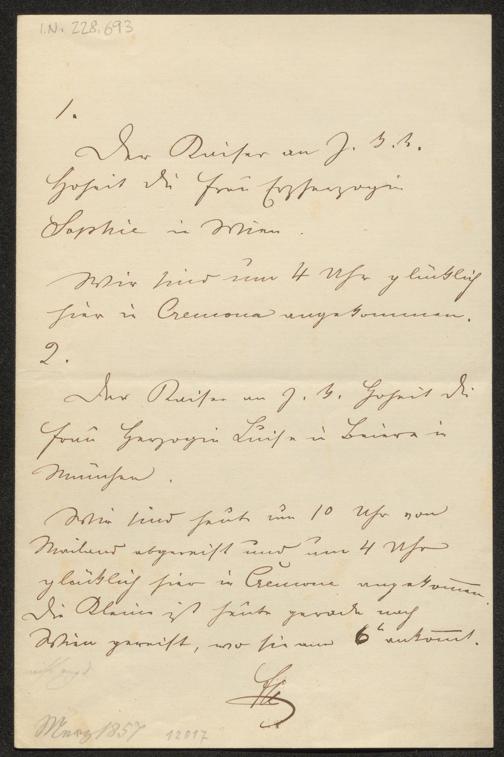 I.N. 228.693
1.
Der Kaiser an J. K. K.
Hoheit die Frau Erzherzogin
Sophie in Wien.
Wir sind um 4 Uhr glücklich
hier in Cremona angekommen.
2.
Der Kaiser an J. K. Hoheit die
Frau Herzogin Luise in Baiern in
München.
Wir sind heute um 10 Uhr von
Mailand abgereist und um 4 Uhr
glücklich hier in Cremona angekom̅en.
Die Kleine ist heute gerade nach
Wien gereist, wo sie am 6ᵗ ankom̅t.
Merz 1857 12017